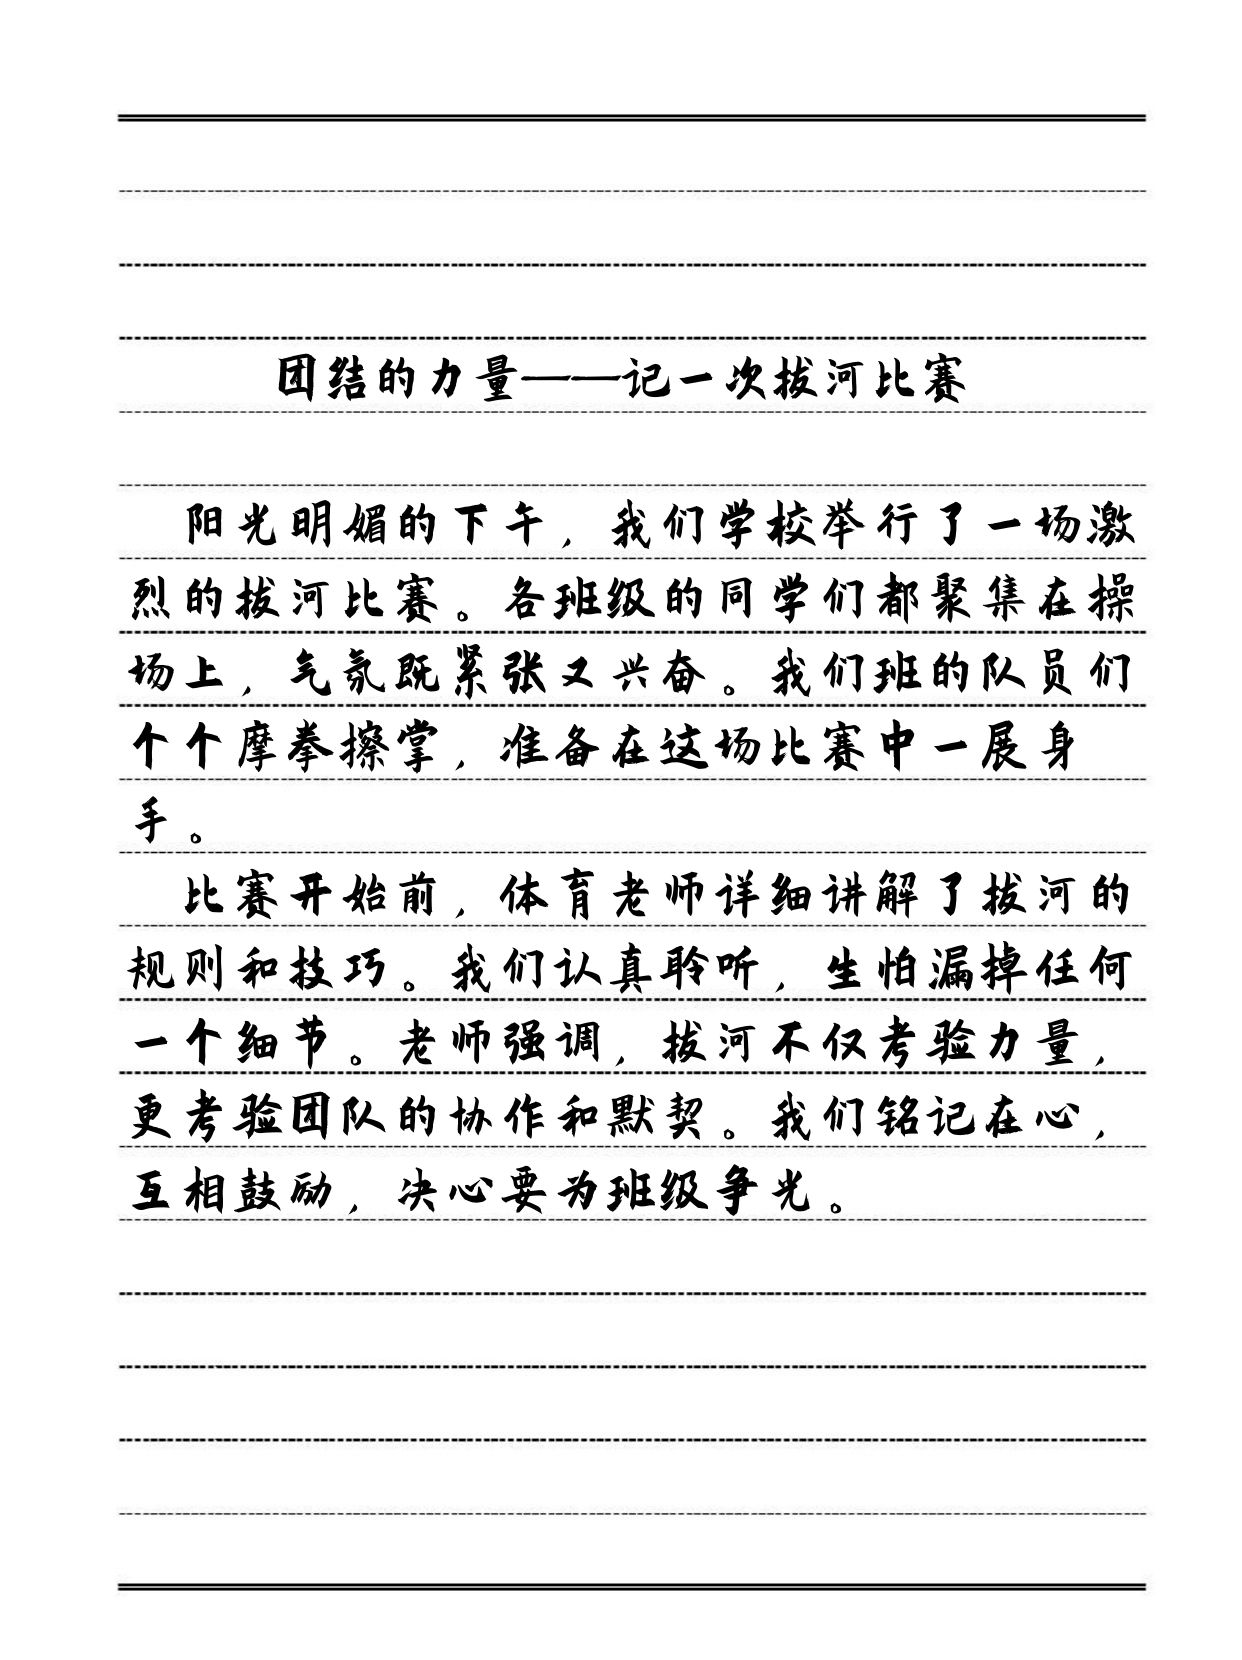 团结的力量——记一次拔河比赛
阳光明媚的下午，我们学校举行了一场激
烈的拔河比赛。各班级的同学们都聚集在操
场上，气氛既紧张又兴奋。我们班的队员们
个个摩拳擦掌，准备在这场比赛中一展身
手。
比赛开始前，体育老师详细讲解了拔河的
规则和技巧。我们认真聆听，生怕漏掉任何
一个细节。老师强调，拔河不仅考验力量，
更考验团队的协作和默契。我们铭记在心，
互相鼓励，决心要为班级争光。